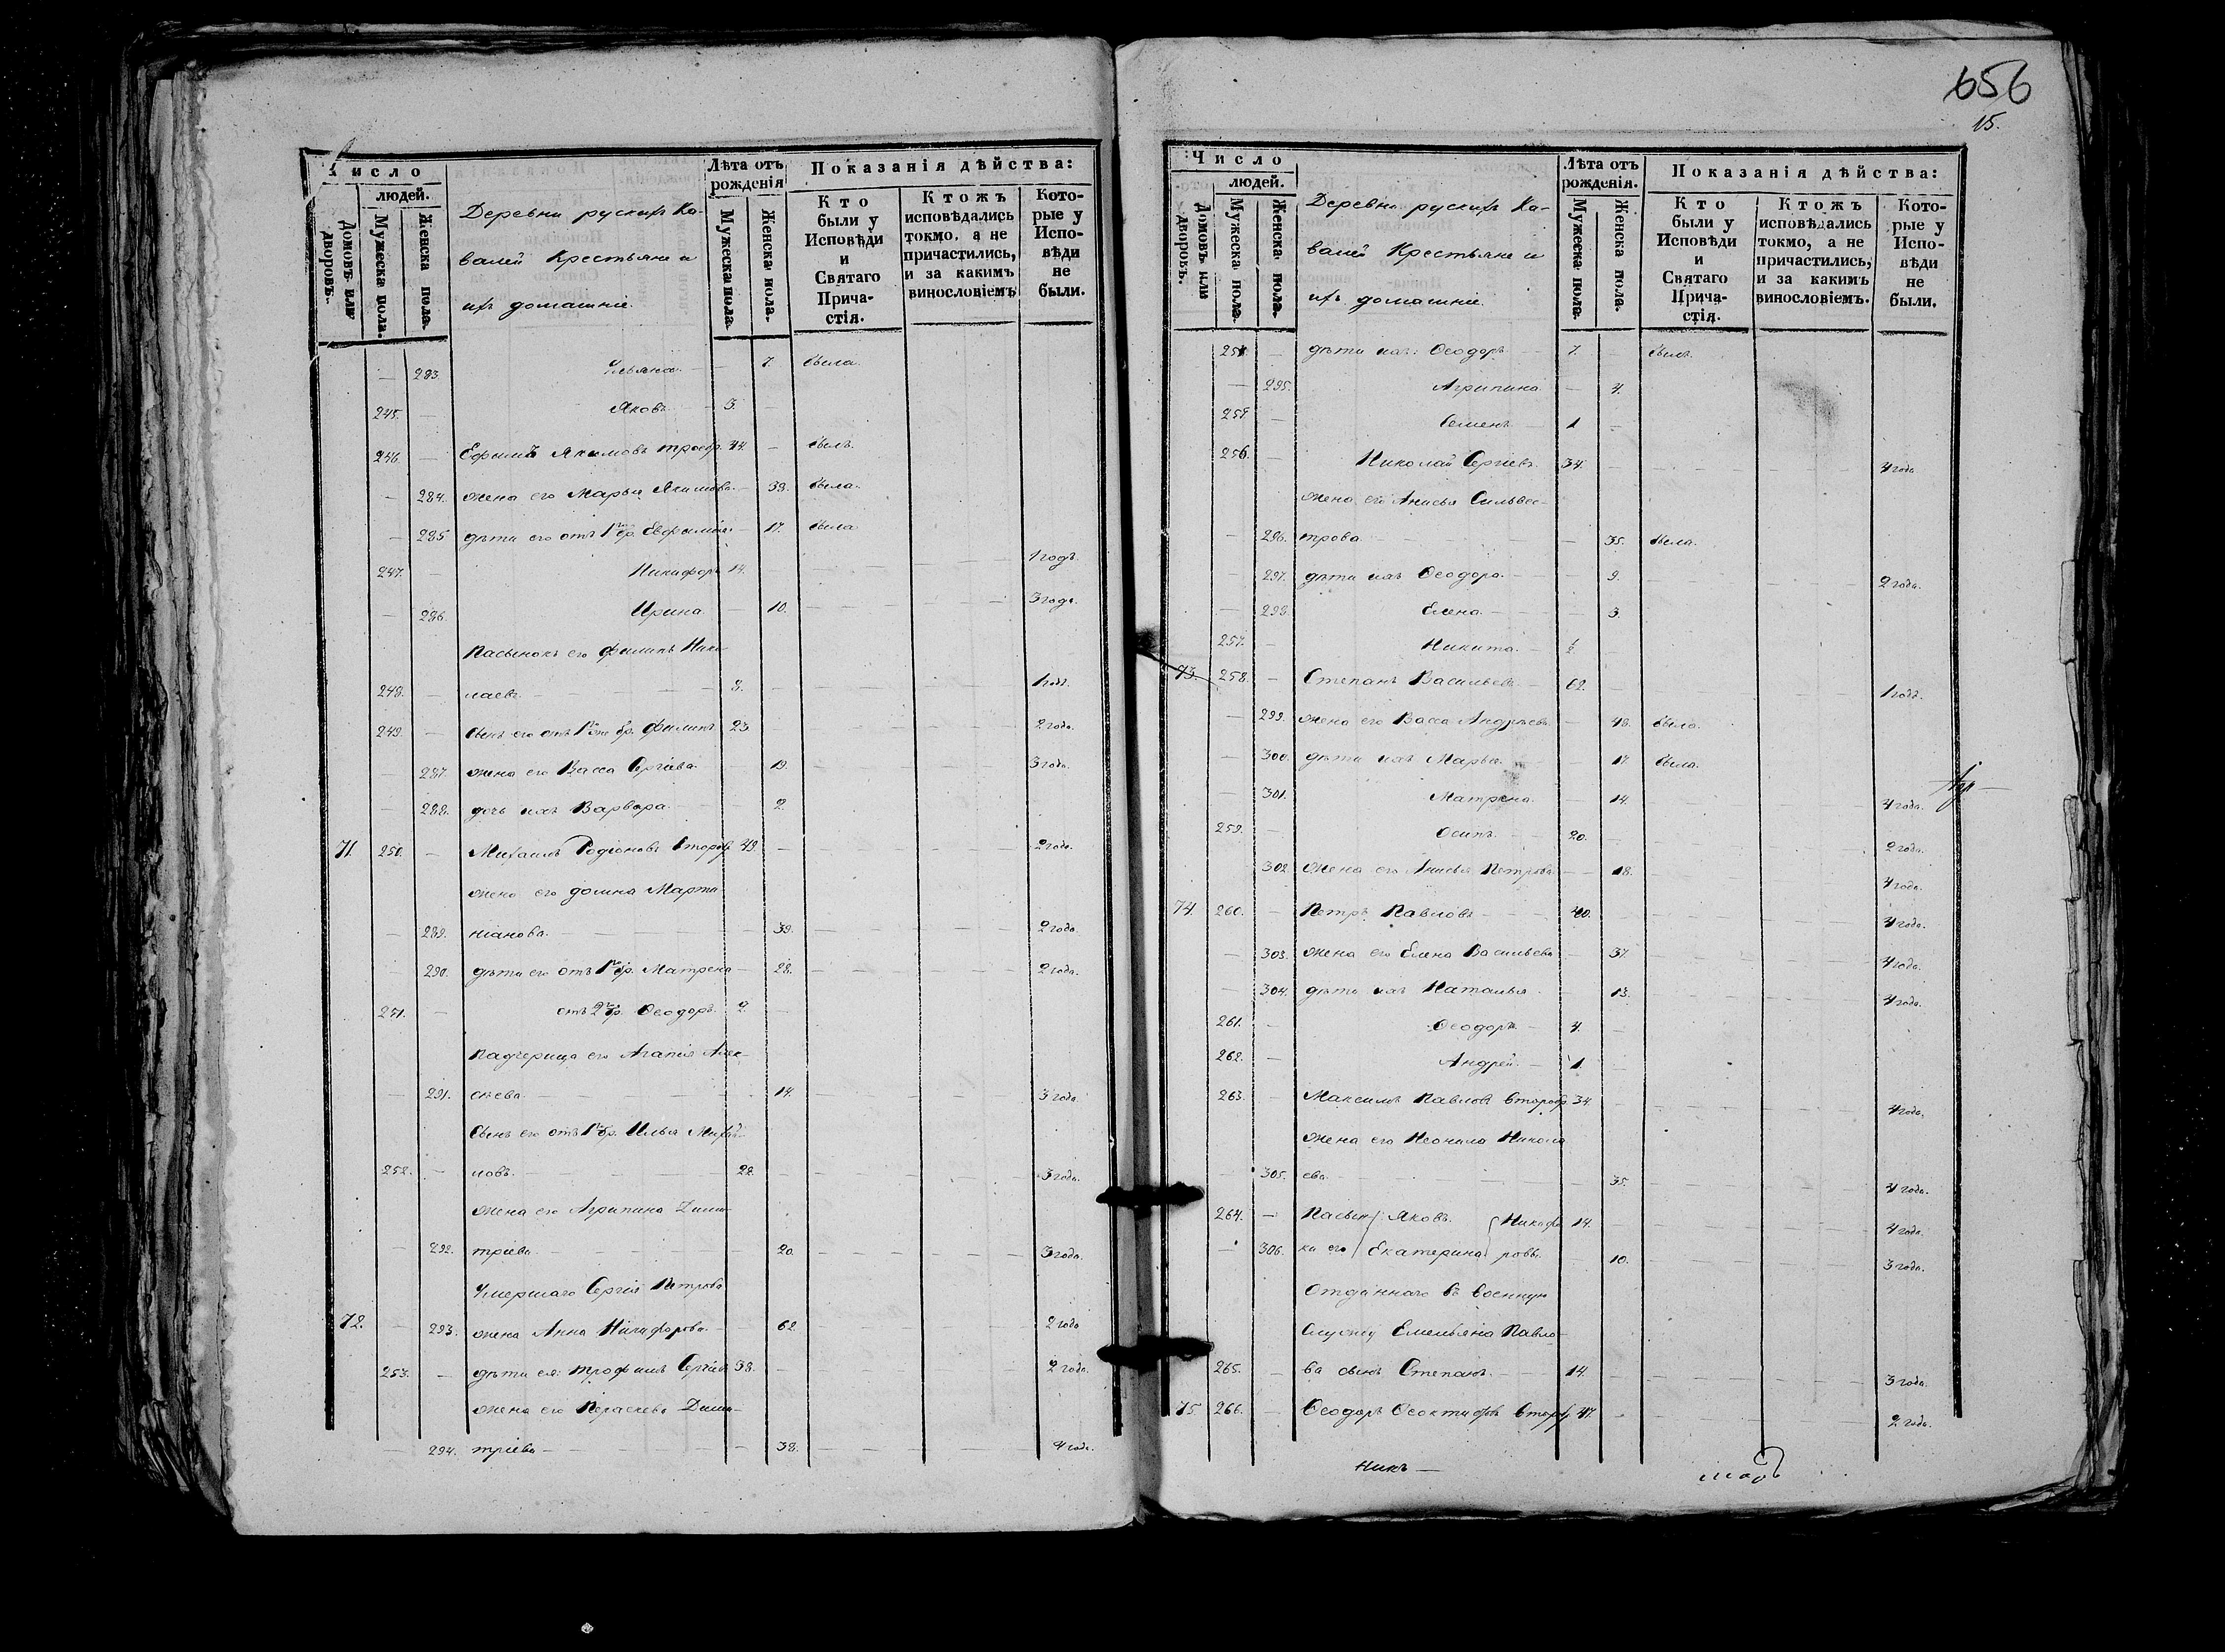 Число
людей.
Домовъ или дворовъ.
Мужеска пола.
Женска пола.
Деревни рускихъ Ка-
валей Крестьяне и
ихъ домашніе.
Лѣта отъ рожденія
Мужеска пола.
Женска пола.
Показанія дѣйства:
Кто были у Исповѣди и Святаго Прича-стія.
Ктожъ исповѣдались токмо, а не причастились, и за какимъ винословіемъ
Кото-рые у Испо-вѣди не были.
— 283. Ульяна. — 7. была
245. — Яковъ 3. —
246. — Ефимъ Якимовъ троебр. 44. — былъ
— 284. жена его Марья Якимова. — 38. была.
— 285 дѣти его отъ 1го бр. Евфимія — 17. была
247. — Никифоръ 14. 1 годъ.
— 286. Ирина. — 10. 3 года.
Пасынокъ его Филипъ Нико-
248. — лаевъ 8. 1 годъ.
249. — сынъ его отъ 1го бр. Филипъ 23. 2 года.
— 287. жена его Васса Сергіева 19. 3 года.
— 288. дочь ихъ Варвара. 2.
71. 250. — Михаилъ Родіоновъ второбр. 49. 2 года.
жена его Домна Марти-
— 289. ніанова. 39. 2 года.
290. дѣти его отъ 1го бр. Матрена 28. 2 года.
251. — отъ 2го бр. Ѳеодоръ. 2. —
Падчерица его Агапія Алек-
— 291. сѣева. 14. 3 года.
Сынъ его отъ 1го бр. Илья Михай-
252. — ловъ. 22. 3 года.
жена его Агрипина Дими-
— 292. тріева. 20. 3 года.
Умершаго Сергія Петрова
72. — 293. жена Анна Никифорова. 62. 2 года
253. — дѣти ея: Трофимъ Сергіевъ 38. 2 года.
жена его Параскева Дими-
— 294. тріева 38. 4 года.
656
15.
Число
людей.
Домовъ или дворовъ.
Мужеска пола.
Женска пола.
Деревни рускихъ Ка-
валей Крестьяне и
ихъ домашніе.
Лѣта отъ рожденія.
Мужеска пола.
Женска пола.
Показанія дѣйства:
Кто были у Исповѣди и Святаго Прича-стія.
Ктожъ исповѣдались токмо, а не причастились, и за какимъ винословіемъ.
Кото-рые у Испо-вѣди не были.
254. — дѣти ихъ: Ѳеодоръ 7. — былъ.
— 295. Агрипина — 4.
255 — Семенъ 1 —
256. — Николай Сергіевъ 34. 4 года
жена его Анисья Сильвес-
— 296. трова. 35. была.
— 297. дѣти ихъ Ѳеодора. 9. 2 года.
— 298. Елена. 3.
257. — Никита. ½ —
73. 258. — Степанъ Васильевъ 62. 1 годъ.
— 299. жена его Васса Андрѣева 48. была.
— 300. дѣти ихъ Марья 17 была.
— 301. Матрена. 14. 4 года.
259. — Осипъ. 20. 2 года.
302. жена его Анисья Петрова 18. 4 года.
74. 260. — Петръ Павловъ 40. 4 года.
— 303. жена его Елена Васильева 37. 4 года.
— 304. дѣти ихъ Наталья 13. 4 года.
261. — Ѳеодоръ 4. —
262. — Андрей. 1. —
263. — Максимъ Павловъ второбр 34. 4 года.
жена его Неонила Никола-
— 305. ева. 35. 4 года.
264. — Пасын- Яковъ. Никифо- 14. 4 года.
— 306. ки его Екатерина ровы. 10. 3 года.
Отданнаго въ военную
службу Емельяна Павло-
265. — ва сынъ Степанъ. 14. 3 года.
75. 266. — Ѳеодоръ Ѳеоктистовъ вторбр. 47. 2 года.